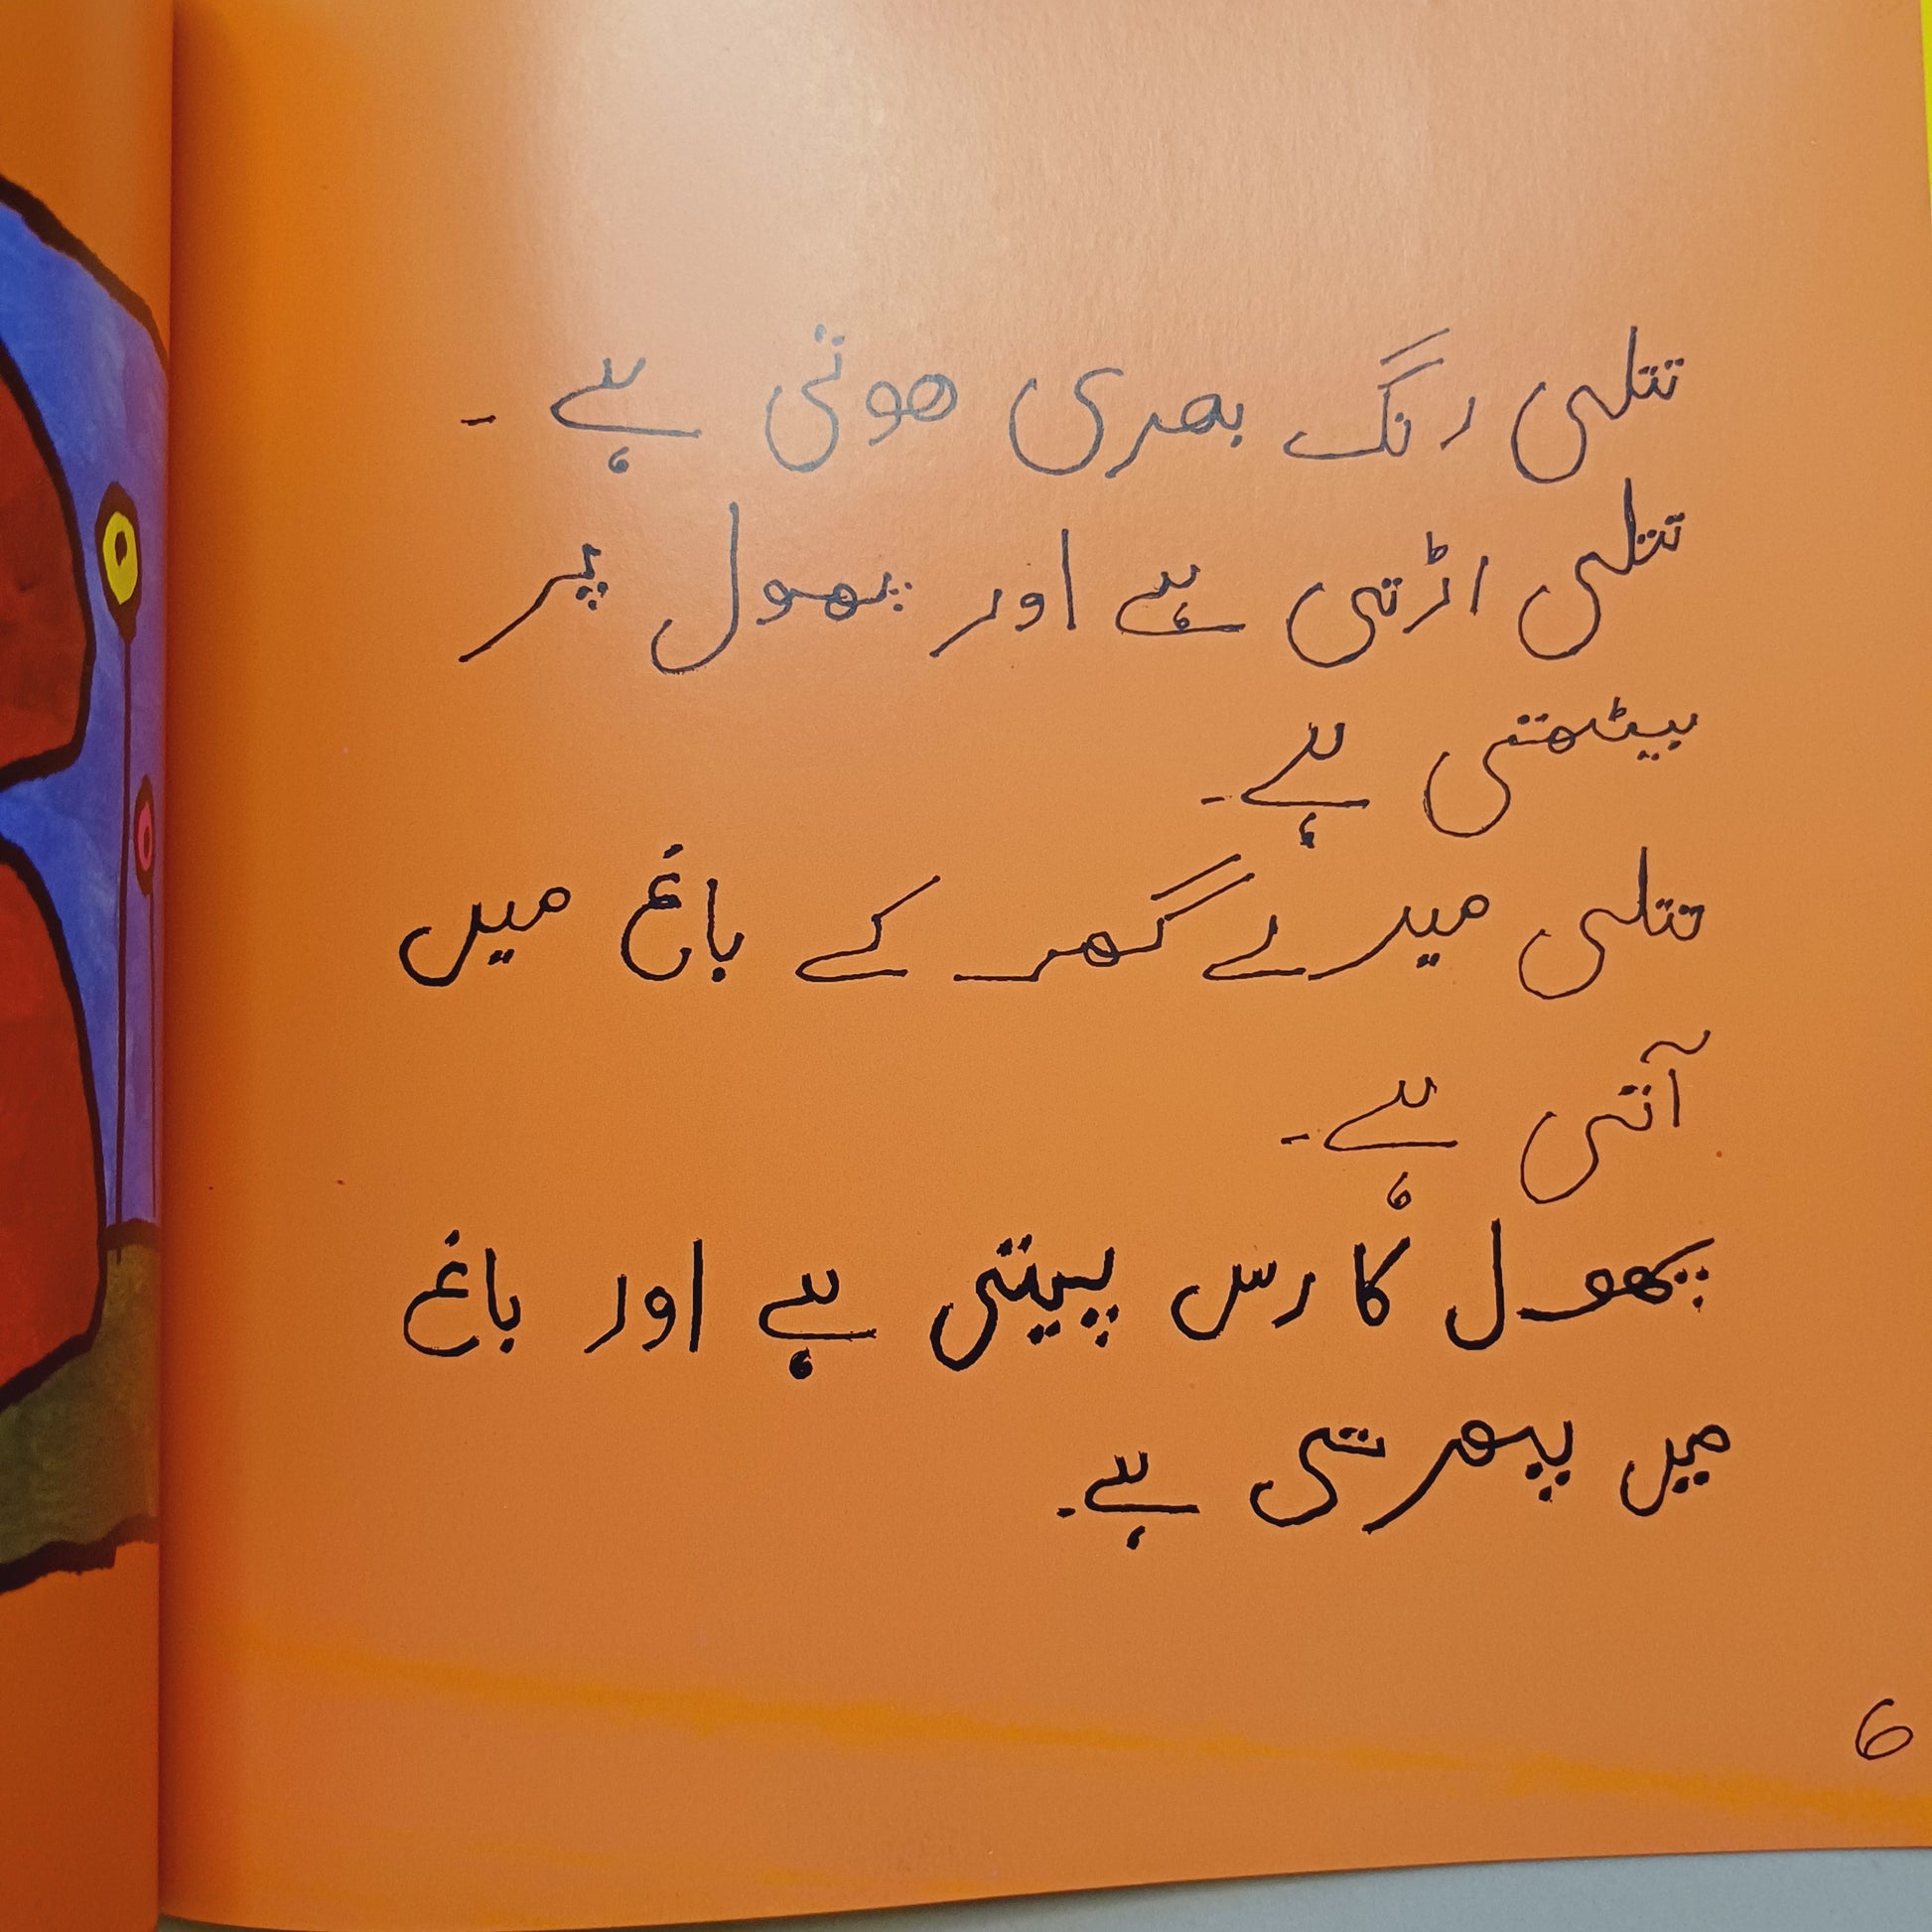 تتلی رنگ بھری ھوتی ہے ۔
تتلی اڑتی ہے اور پھول پر
بیٹھتی ہے۔
تتلی میرے گھر کے باغ میں
آتی ہے۔
پھول کا رس پیتی ہے اور باغ
میں پھرتی ہے۔
6